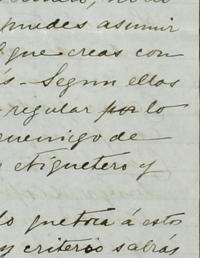 puedes asumir
que creas con
s. Segun ellas
regular lo
enemigo de
etiquetero y
lo que toca á estos
y criterio sabrás